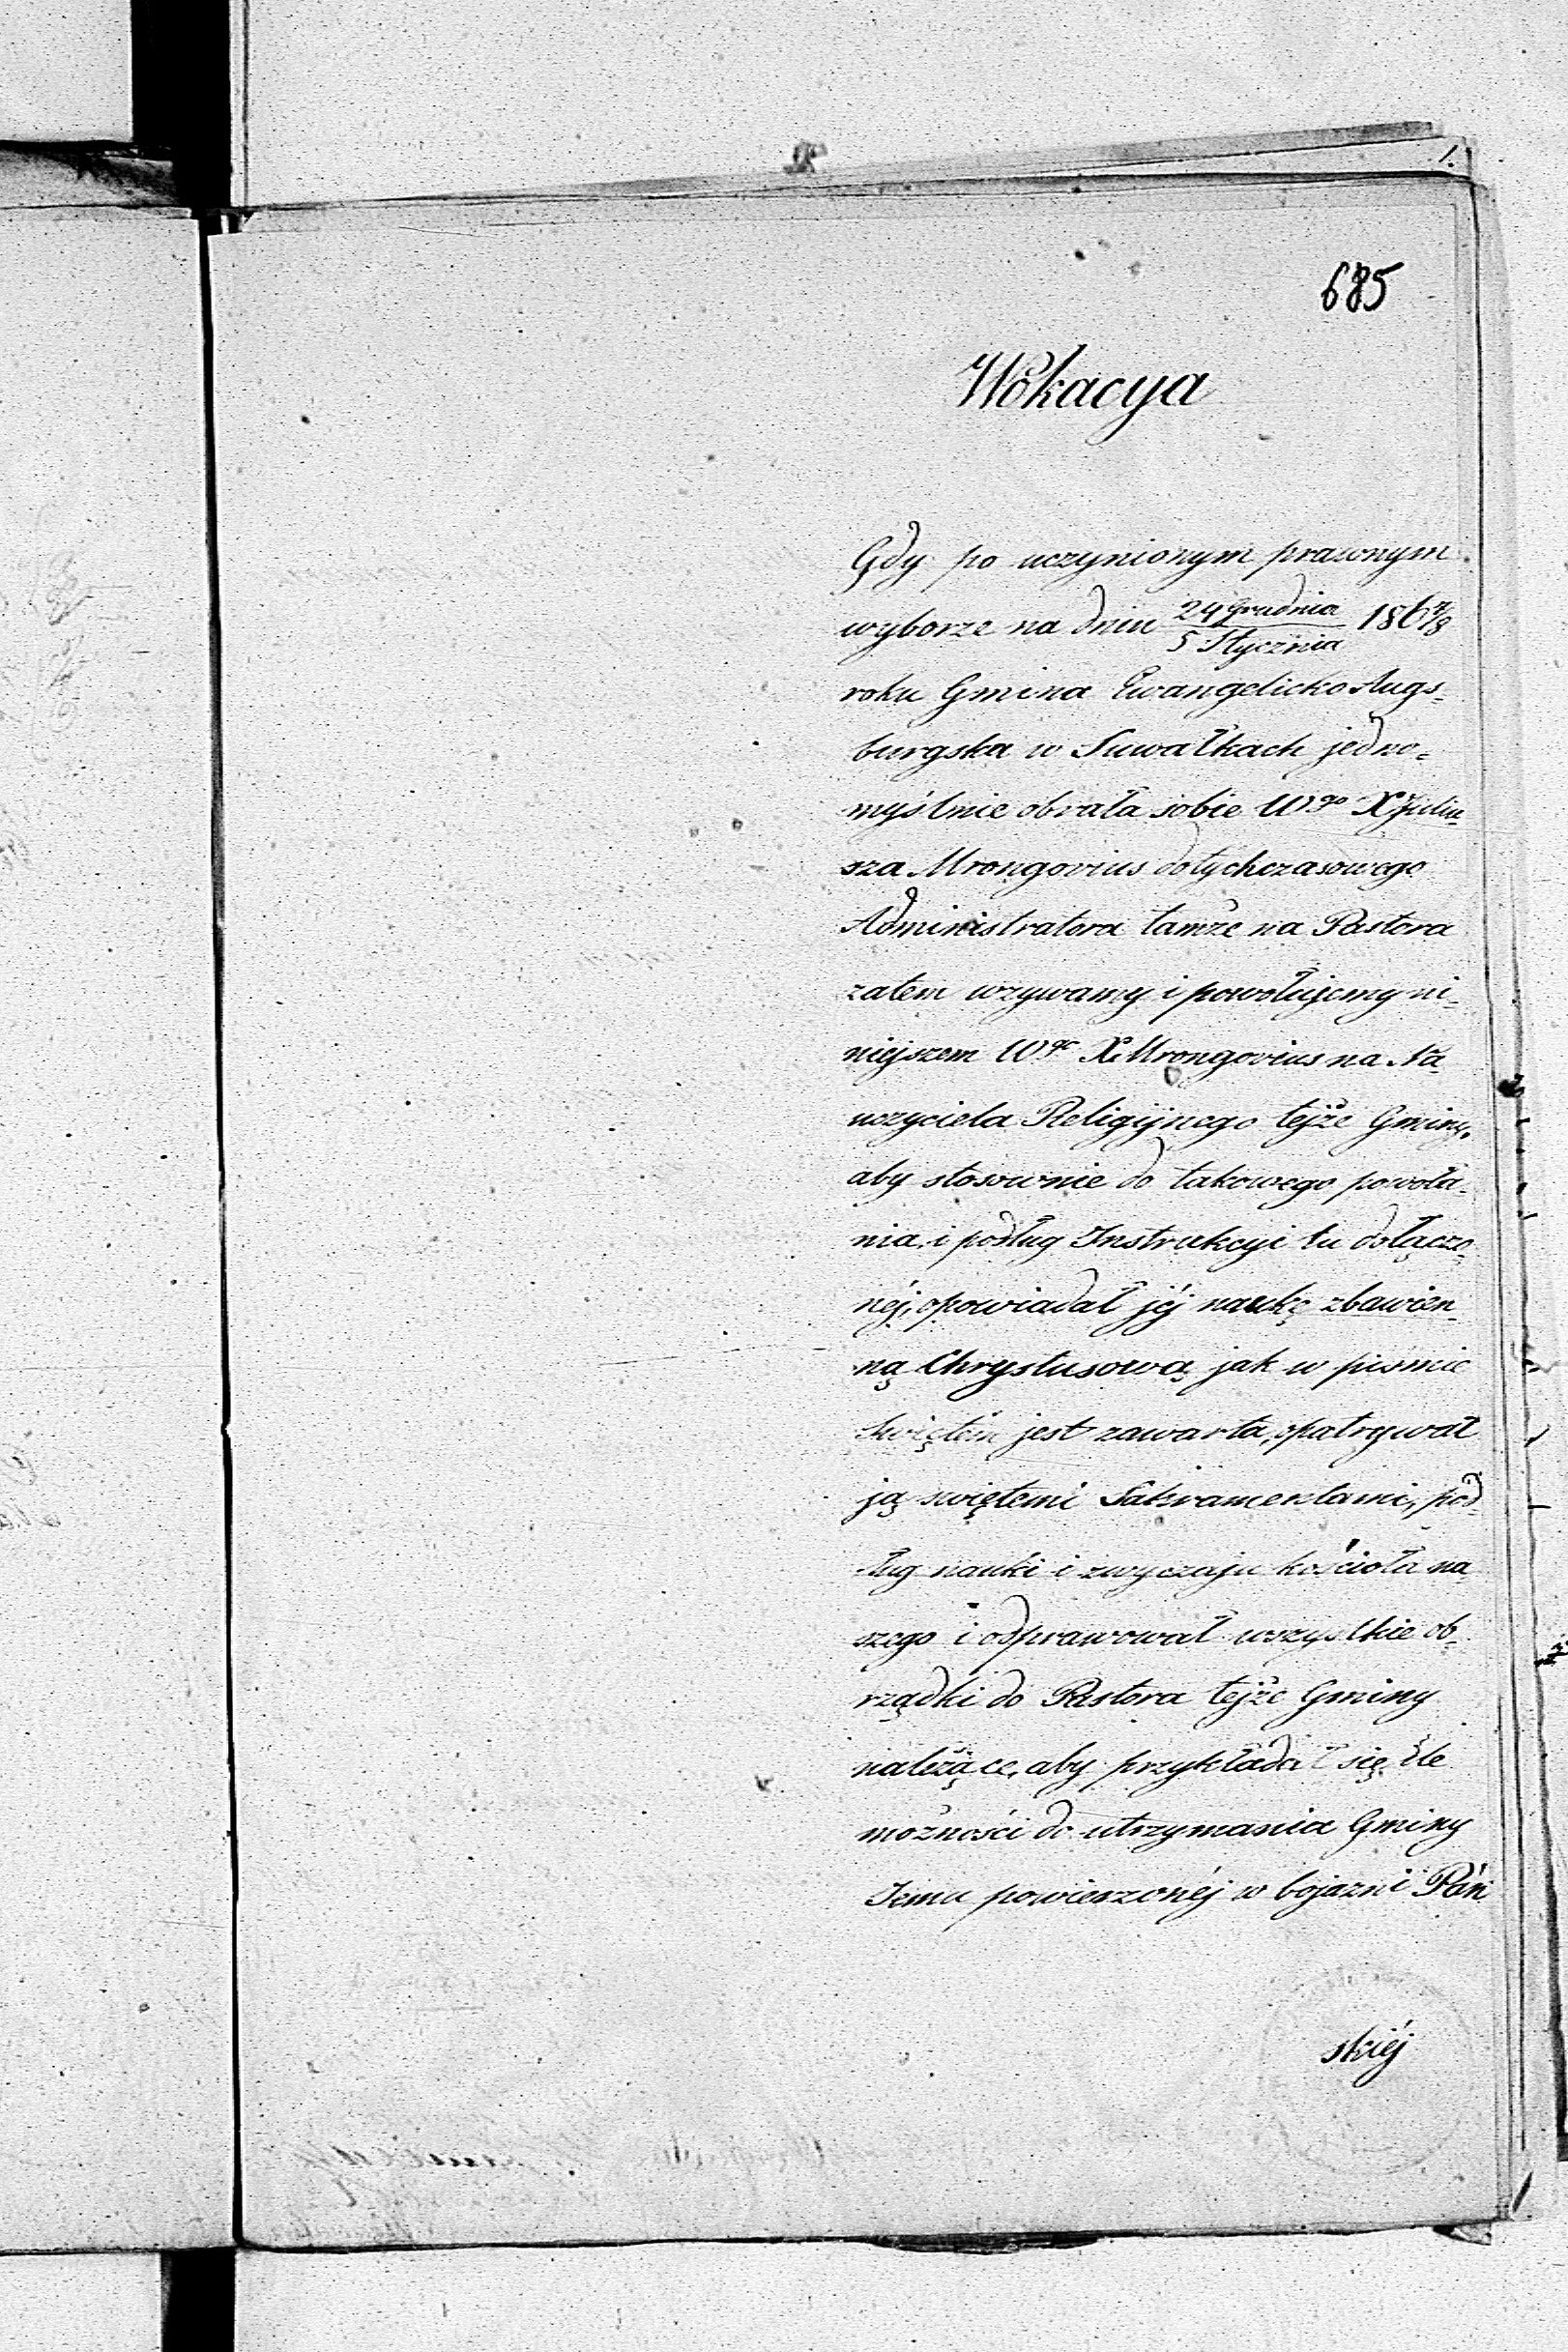 685
Wokacya
Gdy po uczynionym prawnym
wyborze na dniu 24 Grudnia / 5 Stycznia 186 7/8
roku Gmina Ewangelicko Augs-
burgska w Suwałkach jedno-
myślnie obrała sobie Wgo X Juliu-
sza Mrongovius dotychczasowego
Administratora tamże na Pastora
zatem wzywamy i powołujemy ni-
niejszem Wgo X. Mrongovius na Na-
uczyciela Religijnego tejże Gminy,
aby stosownie do takowego powoła-
nia, i podług Instrukcyi tu dołączo-
néj, opowiadał jéj naukę zbawien-
ną Chrystusową jak w pismie
świętém jest zawarta, opatrywał
ją świętemi Sakramentami, pod-
ług nauki i zwyczaju kościoła na-
szego i odprawował wszystkie ob-
rządki do Pastora tejże Gminy
należące, aby przykładał się ile
możności do utrzymania Gminy
Jemu powierzonéj w bojazni Pań
skiéj